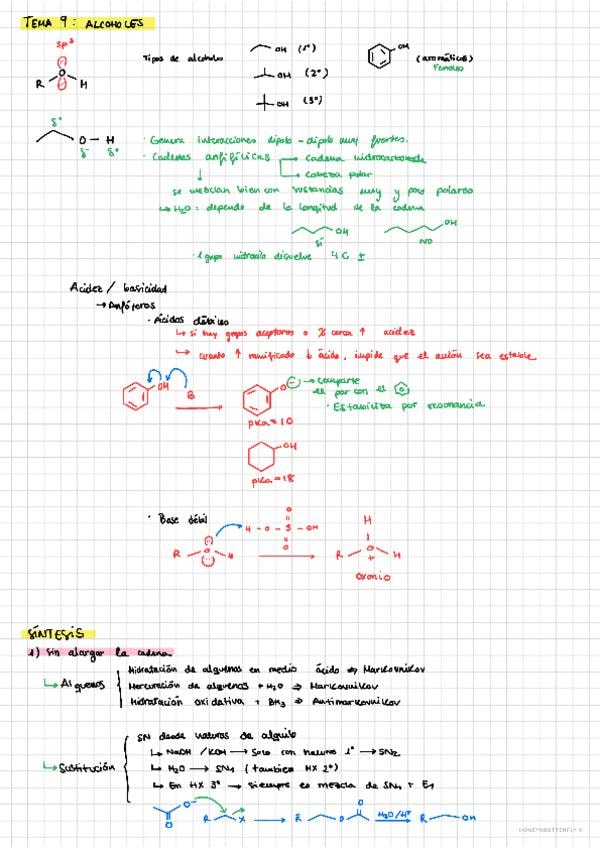 TEMA 9: ALCOHOLES
sp³
R O H
Tipos de alcoholes
OH (1º)
OH (2º)
OH (3º)
OH (aromáticos)
Fenoles
δ⁺
O – H
δ⁻ δ⁺
· Genera interacciones dipolo-dipolo muy fuertes.
· Cadenas anfifílicas → cadena hidrocarbonada
→ cabeza polar
se mezclan bien con sustancias muy y poco polares
↳ H₂O: depende de la longitud de la cadena
OH OH
sí NO
· 1 grupo hidroxilo disuelve 4 C ±
Acidez / basicidad
→ Anfóteros
· Ácidos débiles
↳ si hay grupos aceptores o cerca ↑ acidez
↳ cuanto ↑ ramificado ↓ ácido, impide que el anión sea estable
OH B
O⊖ → comparte
el par con el
· Estabiliza por resonancia
pKa = 10
OH
pKa = 18
· Base débil
R O H
O
H - O - S - OH
O
H
R O H
+
oxonio
SÍNTESIS
1) Sin alargar la cadena
↳ Alquenos
Hidratación de alquenos en medio ácido ⇒ Markovnikov
Mercuración de alquenos + H₂O ⇒ Markovnikov
Hidratación oxidativa + BH₃ ⇒ Antimarkovnikov
↳ Sustitución
SN desde haluros de alquilo
↳ NaOH / KOH → Solo con haluros 1º → SN2
↳ H₂O → SN1 (tambien HX 2º)
↳ En HX 3º → siempre es mezcla de SN1 + E1
O⁻ O R X → R O O H₂O/H⁺ R OH
HONEYNBUTTERFLY ©